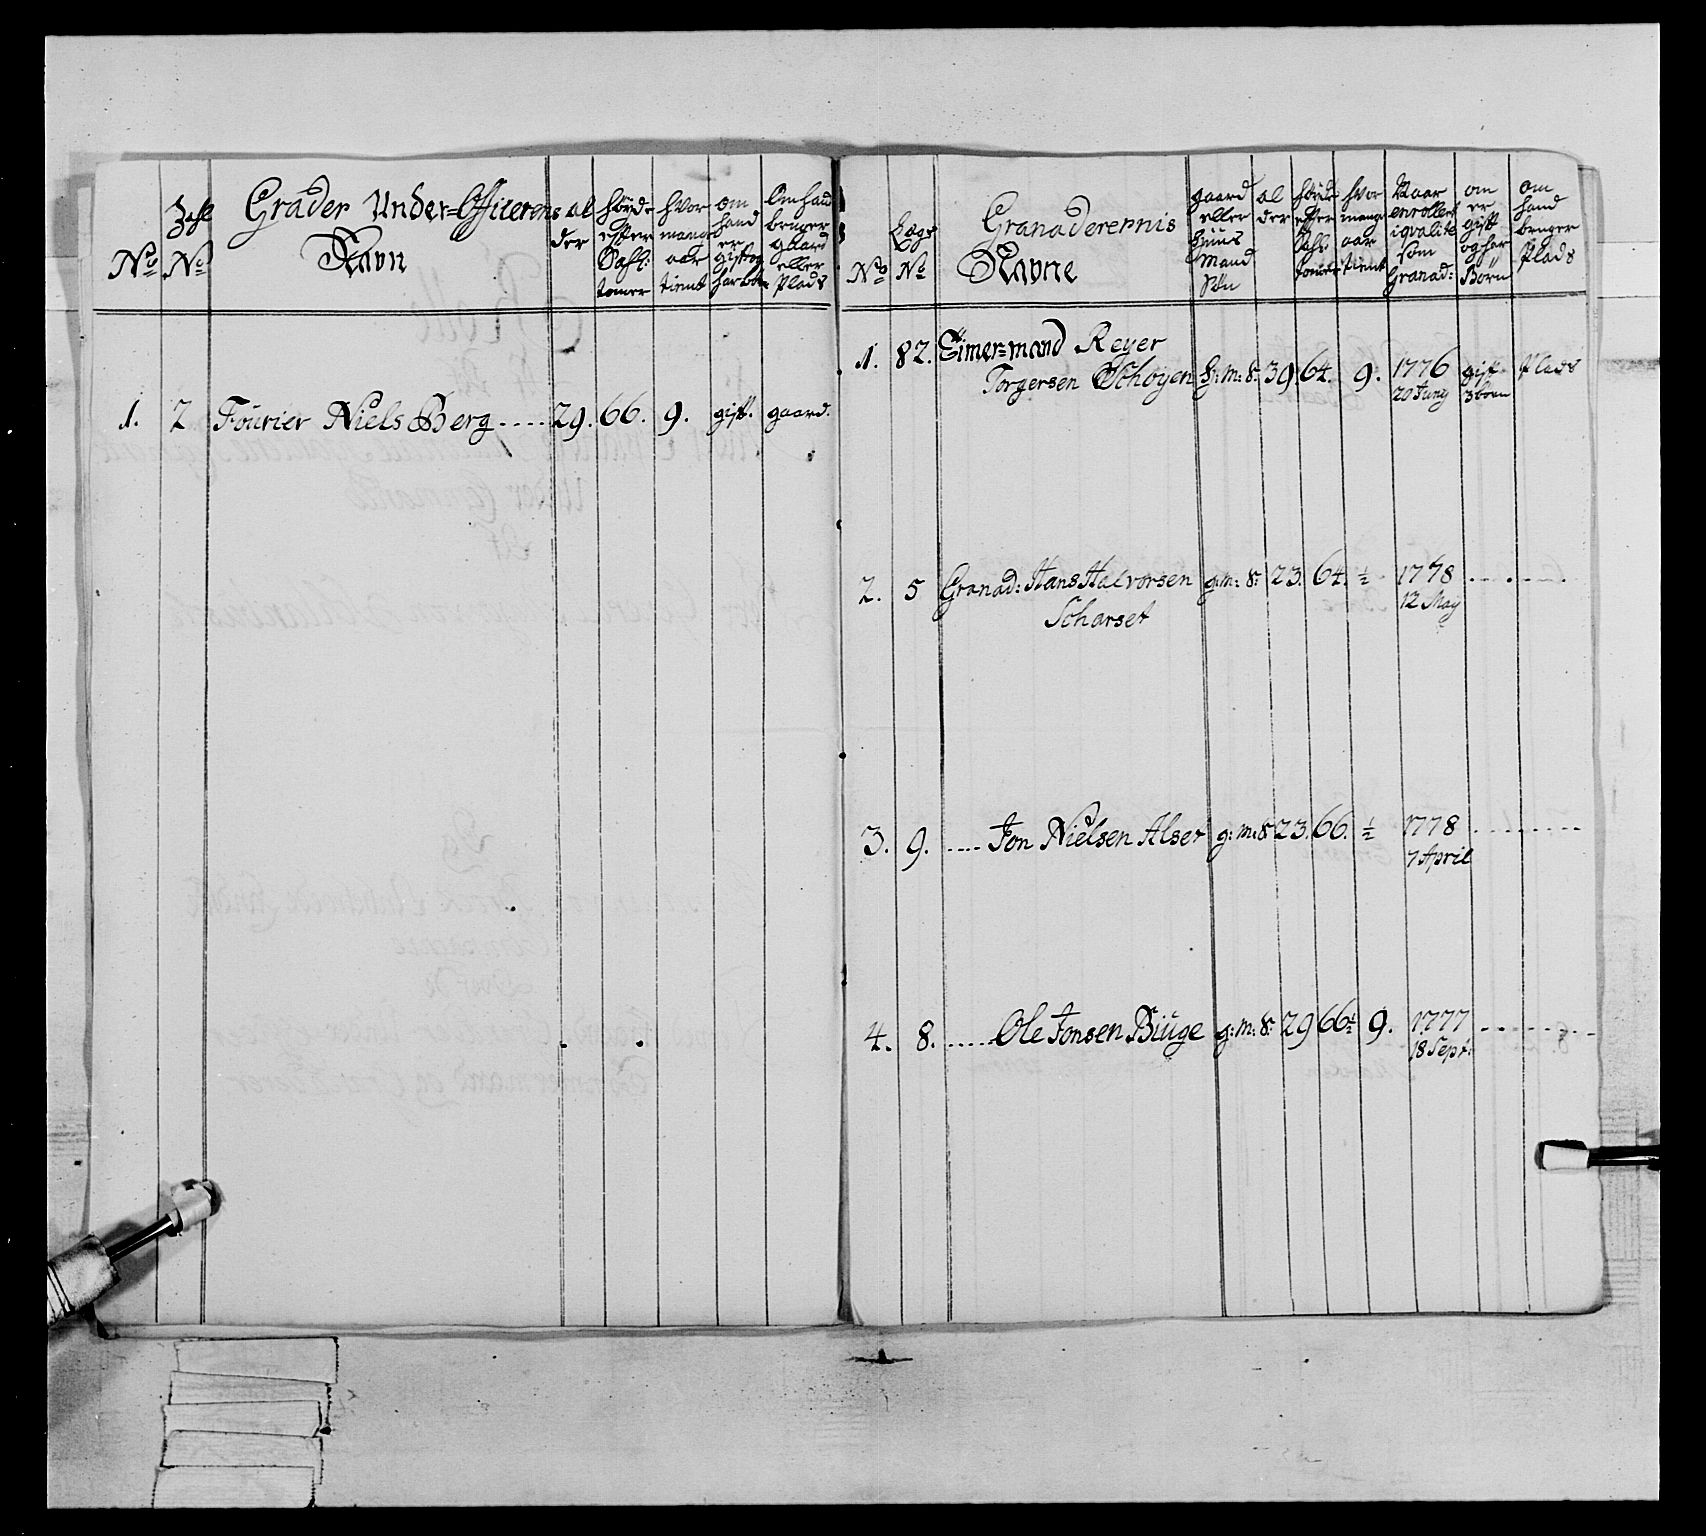 No
Zahl No
Grader Under=Officerens Navn
al der
høyde efter Sahl: tomer
hvor mange aar tient
om hand er gift og har børn
Om hand bruger gaard eller Plads
1. 2 Fourier Niels Berg .... 29. 66. 9. gift. gaard.
No
Lægs No
Granaderernis Navne
gaard eller huus mand Søn
al der
høyde efter Sahl: tomer
hvor mange aar tient
Naar enrollert i qvalite som Granad:
om er gift og har Børn
om hand bruger Plads
1. 82. Timer=mand Reyer
Torgersen Schøyen h: m: S: 39. 64. 9. 1776 gift Plads
20 Juny 3 born
2. 5 Granad: Hans Halvorsen g: m: S: 23. 64. ½ 1778
Scharset 12 May
3. 9. .... Jon Nielsen Alset g: m: S 23. 66. ½ 1778
7 April
4. 8. .... Ole Jonsen Biuge g: m: S: 29 66½ 9. 1777
18 Sept: